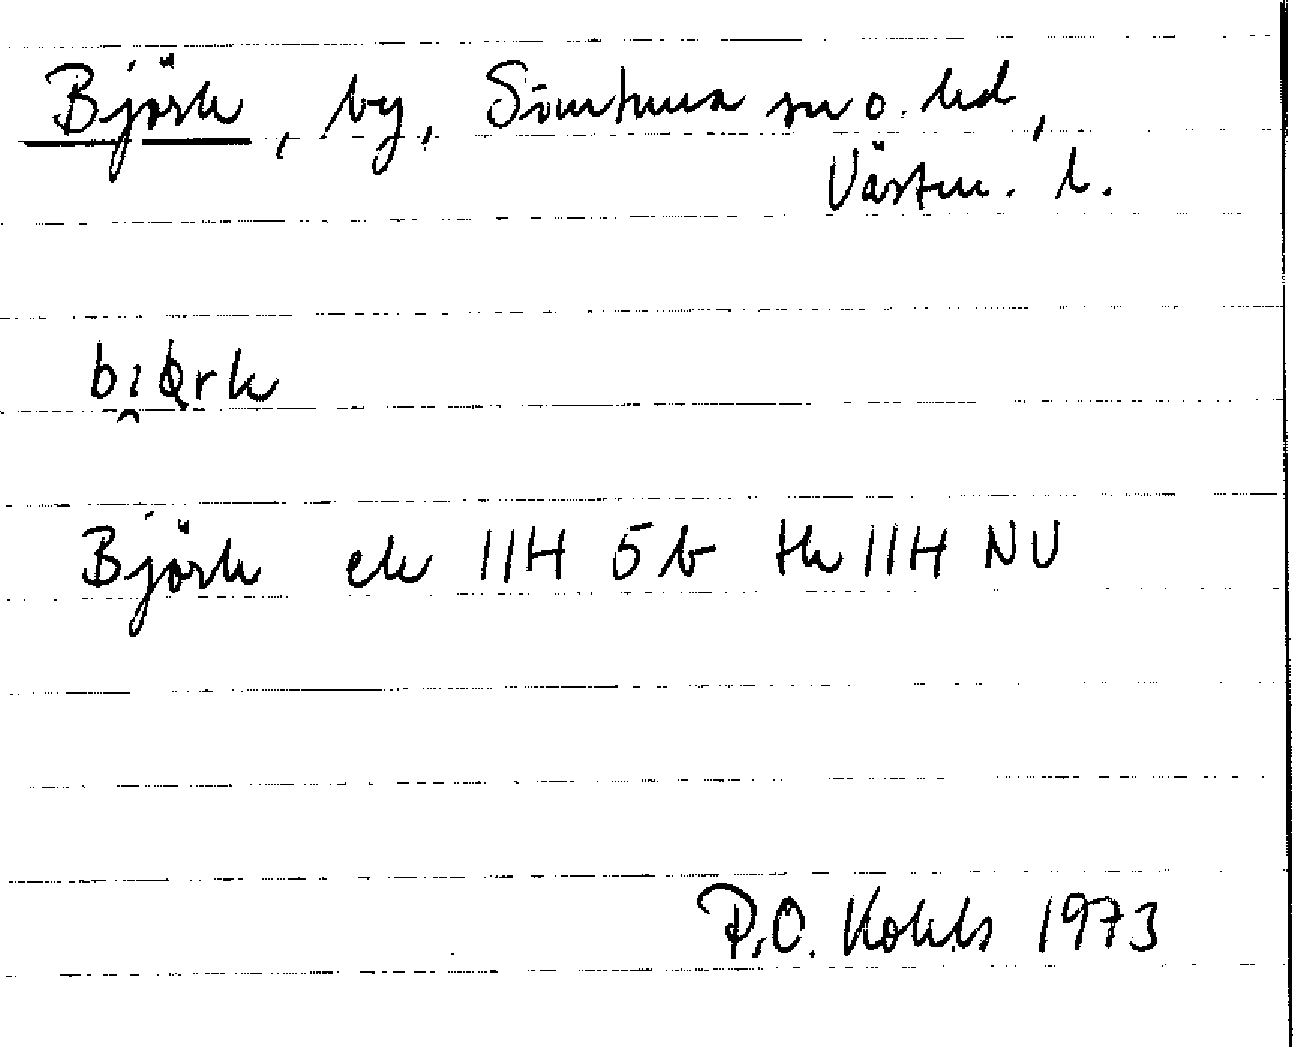 Björk, by, Simtuna sn o. hd,
Västm. l.
bi̯ørk
Björk ek 11H 5b tk 11H NV
P.O. 1973